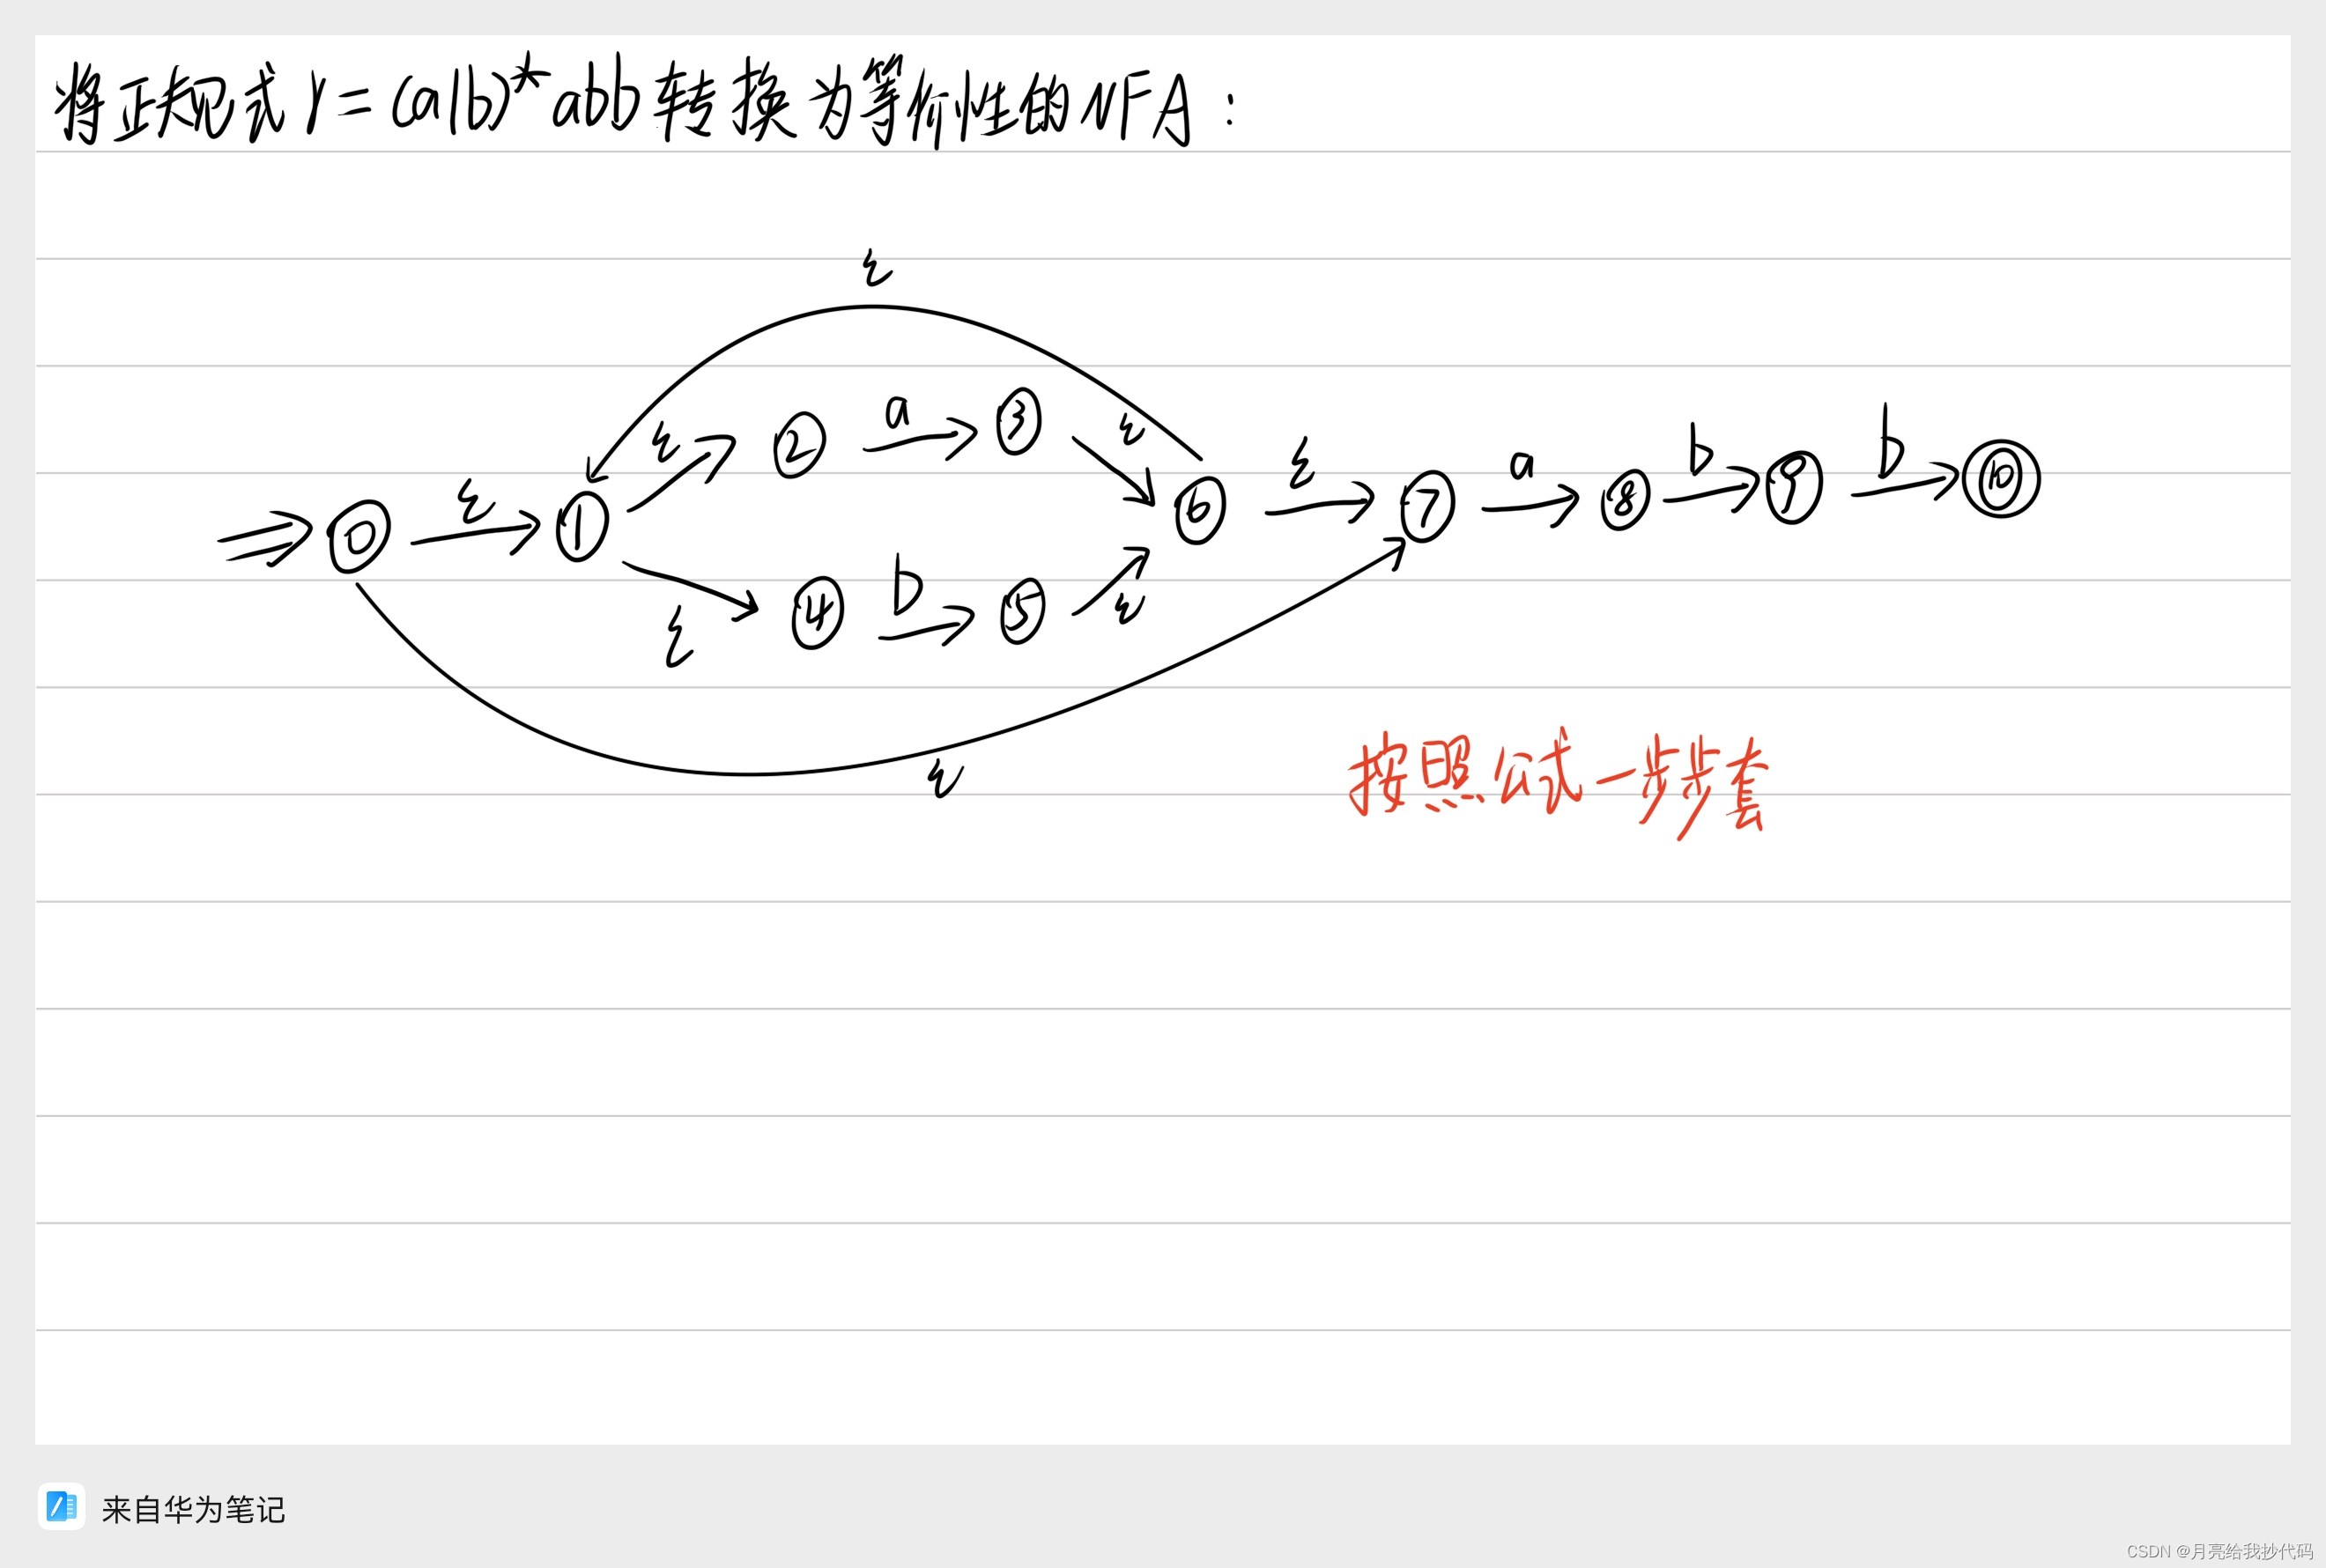 将正规式 r = (a|b)* abb 转换为等价性的NFA:
ε
ε a ③ ε
② ε a b b
⇒ ⓪ ε ① ⑥ ⑦ ⑧ ⑨ ⑩
ε ④ b ⑤ ε
ε
按照公式一步步套
来自华为笔记
CSDN @月亮给我抄代码